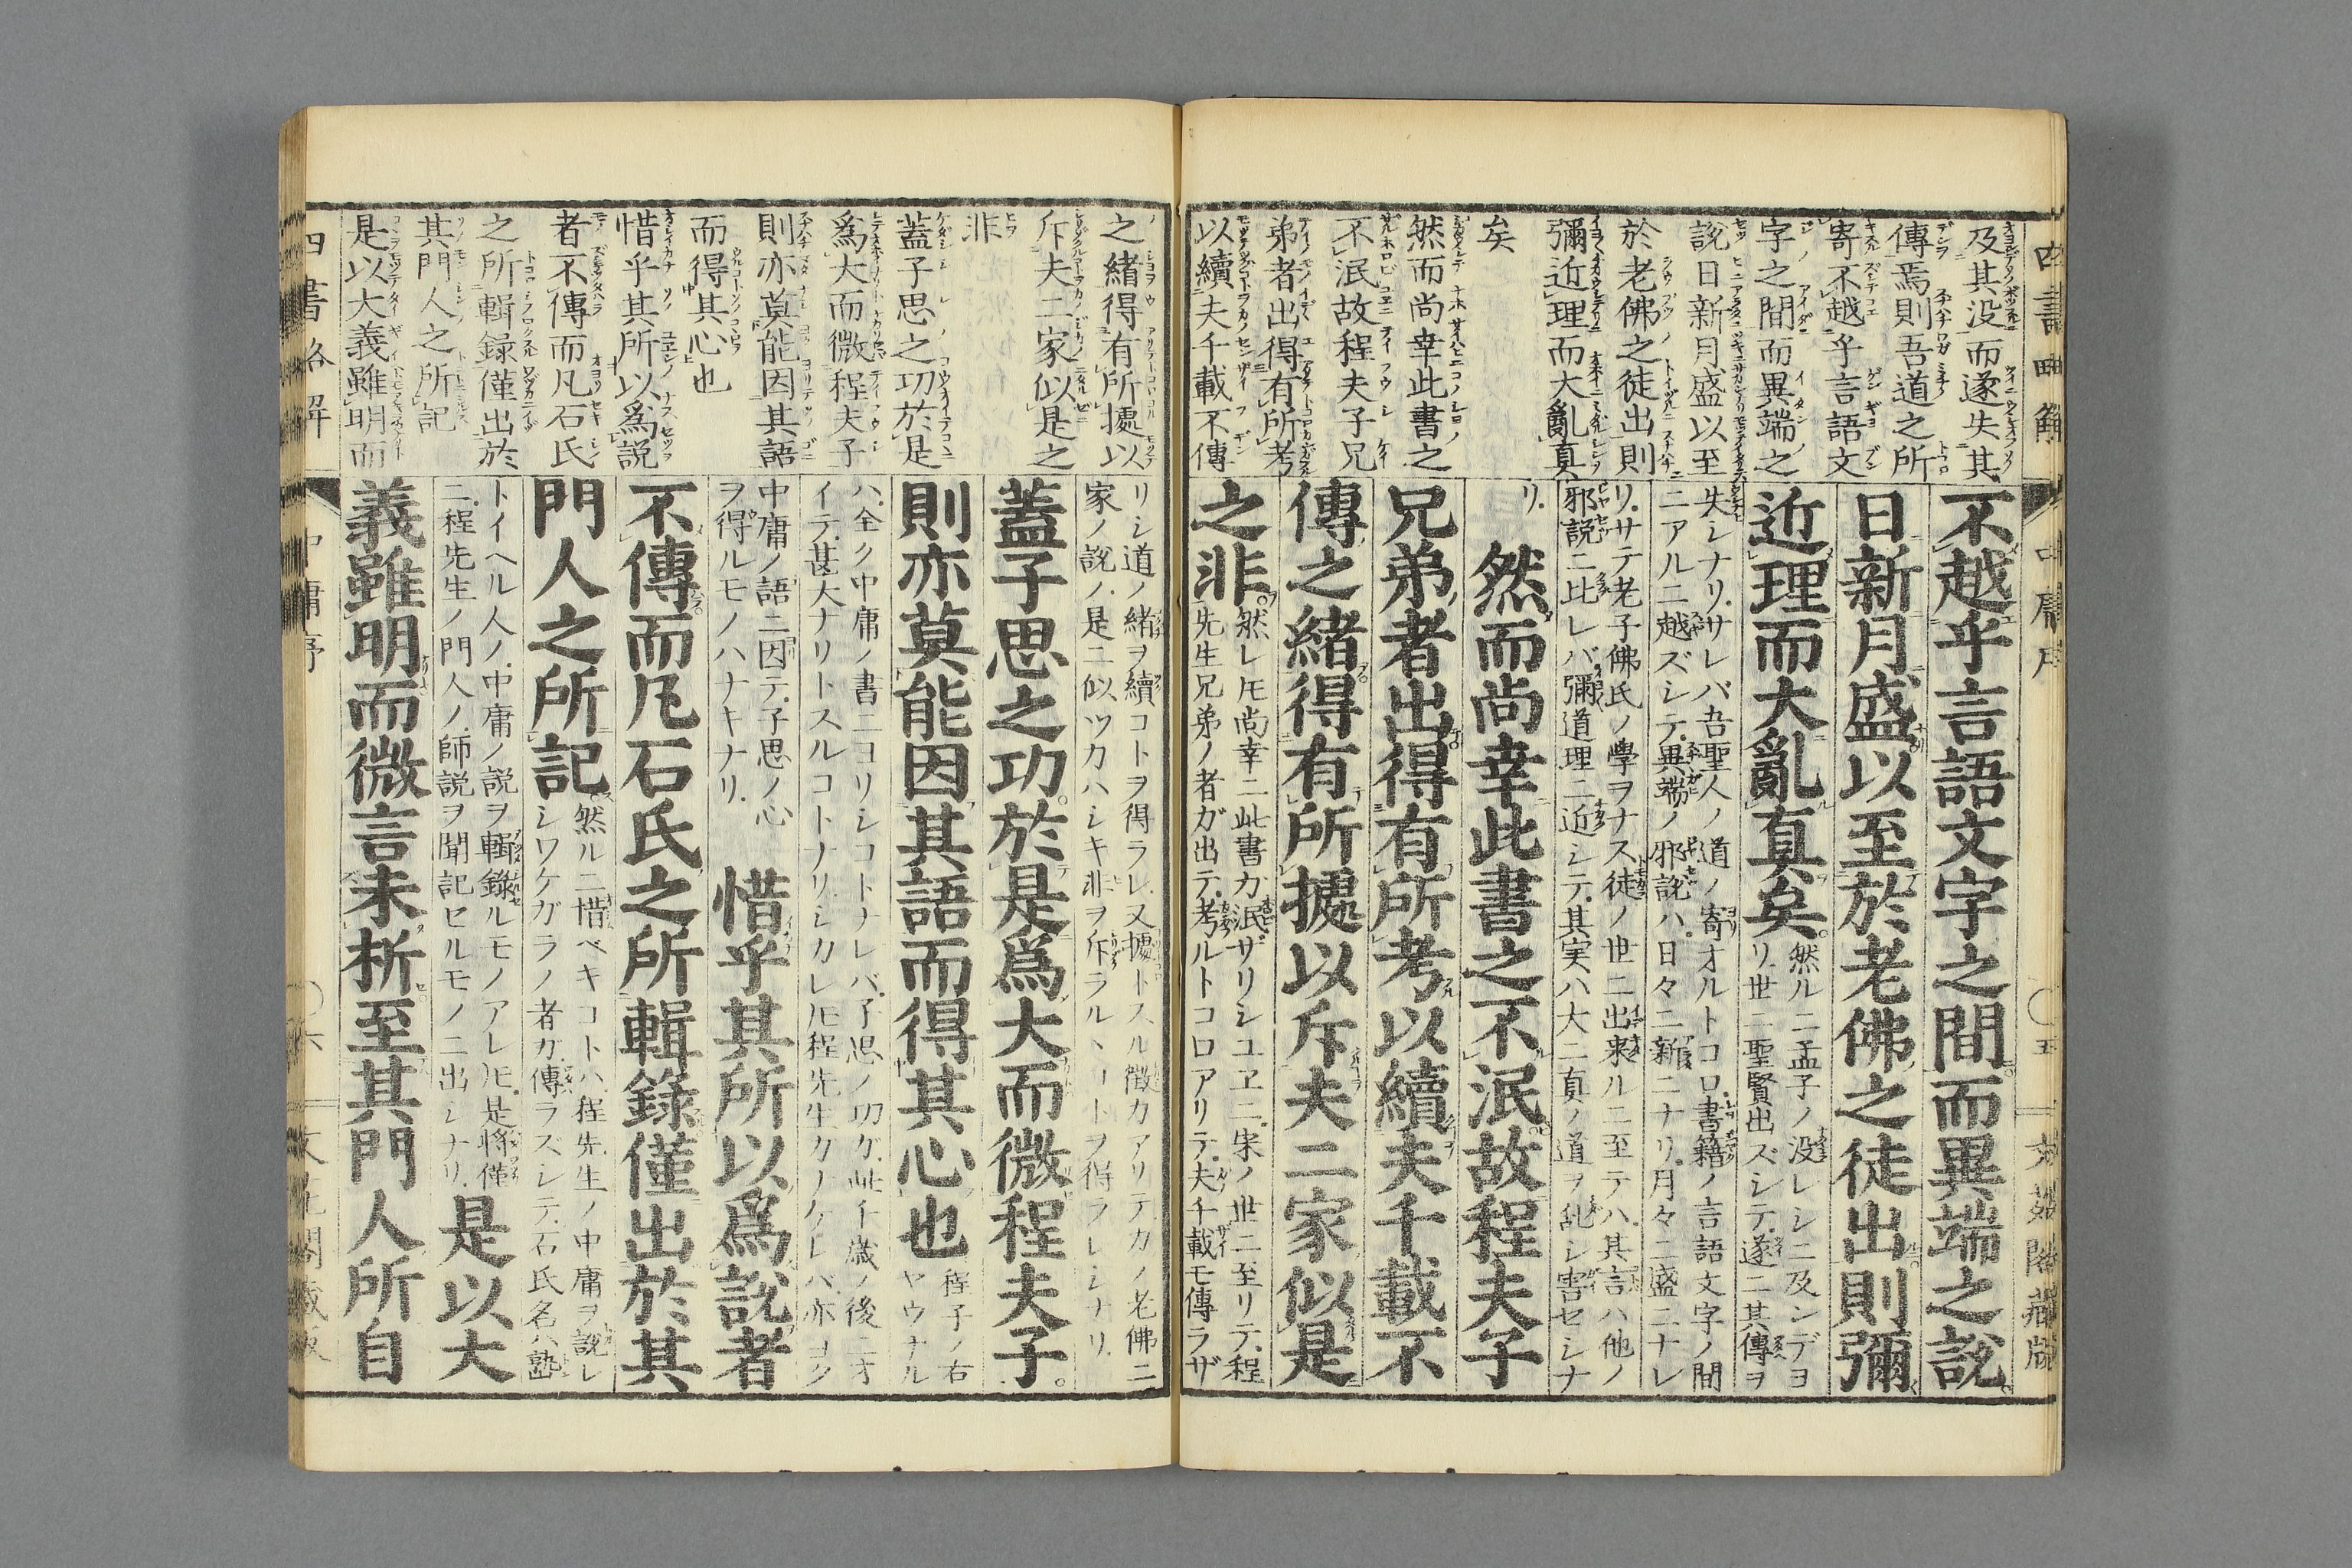 四書略解
中庸序
〇五
文苑閣藏版
及其没而遂失其
傳焉則吾道之所
寄不越乎言語文
字之間而異端之
説日新月盛以至
於老佛之徒出則
彌近理而大亂真
矣
然而尚幸此書之
不泯故程夫子兄
弟者出得有所考
以續夫千載不傳
不越乎言語文字之間而異端之説
日新月盛以至於老佛之徒出則彌
近理而大亂真矣
然ルニ孟子ノ没レシニ及ンデヨ
リ世ニ聖賢出ズシテ遂ニ其傳ヲ
失シナリ.サレバ吾聖人ノ道ノ寄オルトコロ書籍ノ言語文字ノ間
ニアルニ越ズシテ異端ノ邪説ハ.日々ニ新ニナリ.月々ニ盛ニナレ
リ.サテ老子佛氏ノ學ヲナス徒ノ世ニ出来ルニ至テハ其言ハ他ノ
邪説ニ比レバ彌道理ニ近シテ其実ハ大ニ真ノ道ヲ乱シ害セシナ
リ.
然而尚幸此書之不泯故程夫子
兄弟者出得有所考以續夫千載不
傳之緒得有所據以斥夫二家似是
之非
然レ𪜈尚幸ニ此書カ泯ザリシユヱニ宋ノ世ニ至リテ程
先生兄弟ノ者ガ出テ考ルトコロアリテ夫千載モ傳ラザ
之緒得有所據以
斥夫二家似是之
非
蓋子思之功於是
爲大而微程夫子
則亦莫能因其語
而得其心也
惜乎其所以爲説
者不傳而凡石氏
之所輯録僅出於
其門人之所記
是以大義雖明而
リシ道ノ緒ヲ續コトヲ得ラレ又據トスル徴カアリテカノ老佛ニ
家ノ説ノ是ニ似ツカハシキ非ヲ斥ラルヽコトヲ得ラレシナリ.
蓋子思之功於是爲大而微程夫子
則亦莫能因其語而得其心也
程子ノ右
ヤウナル
ハ全ク中庸ノ書ニヨリシコトナレバ子思ノ功ガ此千歳ノ後ニオ
イテ甚大ナリトスルコトナリシカレ𪜈程先生カノケレバ亦ヨク
中庸ノ語ニ因テ子思ノ心
ヲ得ルモノハナキナリ.
惜乎其所以爲説者
不傳而凡石氏之所輯録僅出於其
門人之所記
然ルニ惜ベキコトハ程先生ノ中庸ヲ説レ
シワケガラノ者カ傳ラズシテ石氏名ハ𡼏
トイヘル人ノ中庸ノ説ヲ輯録ルモノアレ𪜈是將僅
ニ程先生ノ門人ノ師説ヲ聞記ヒルモノニ出シナリ.
是以大
義雖明而微言未析至其門人所自
四書略解
中庸序
〇六
文苑閣藏版